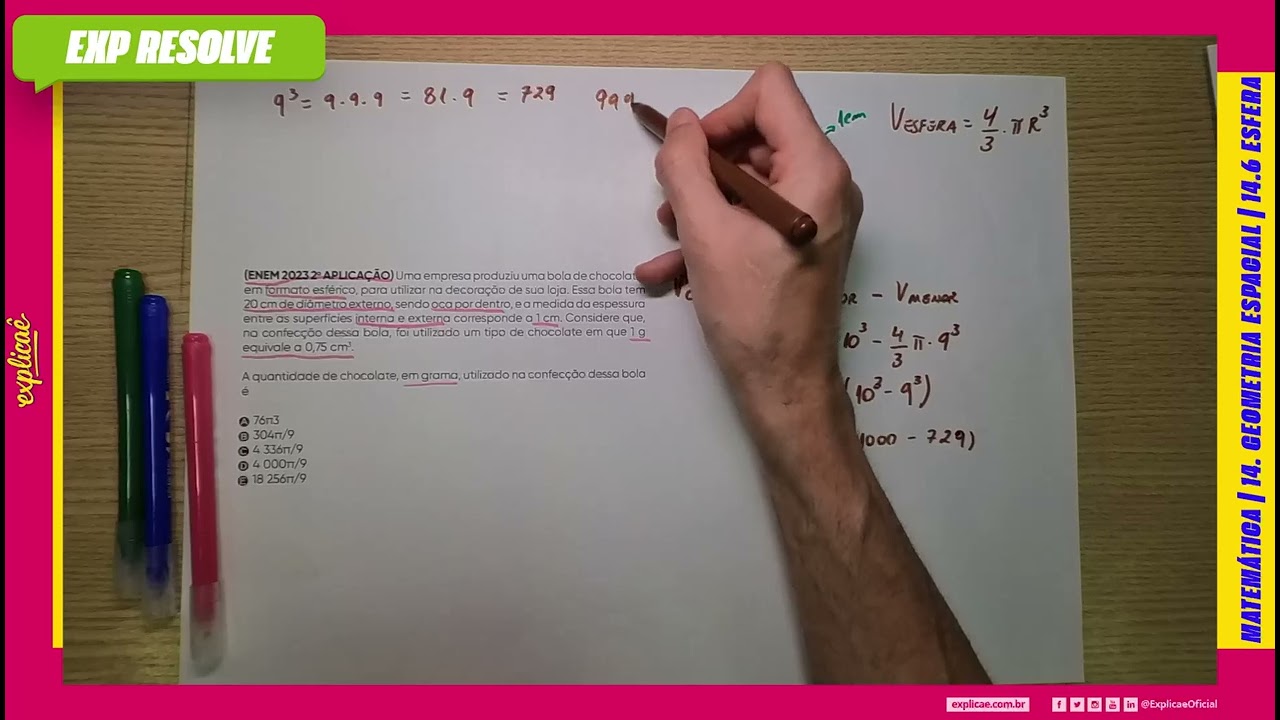 EXP RESOLVE
9³ = 9.9.9 = 81.9 = 729 999
1cm
VESFERA = 4/3 . π R³
(ENEM 2023 2ª APLICAÇÃO) Uma empresa produziu uma bola de chocolat
em formato esférico, para utilizar na decoração de sua loja. Essa bola tem
20 cm de diâmetro externo, sendo oca por dentro, e a medida da espessura
entre as superfícies interna e externa corresponde a 1 cm. Considere que,
na confecção dessa bola, foi utilizado um tipo de chocolate em que 1 g
equivale a 0,75 cm³.
A quantidade de chocolate, em grama, utilizado na confecção dessa bola
é
A 76π3
B 304π/9
C 4 336π/9
D 4 000π/9
E 18 256π/9
OR - VMENOR
10³ - 4/3 π . 9³
(10³ - 9³)
1000 - 729)
explicaê
MATEMÁTICA | 14. GEOMETRIA ESPACIAL | 14.6 ESFERA
explicae.com.br
@ExplicaeOficial